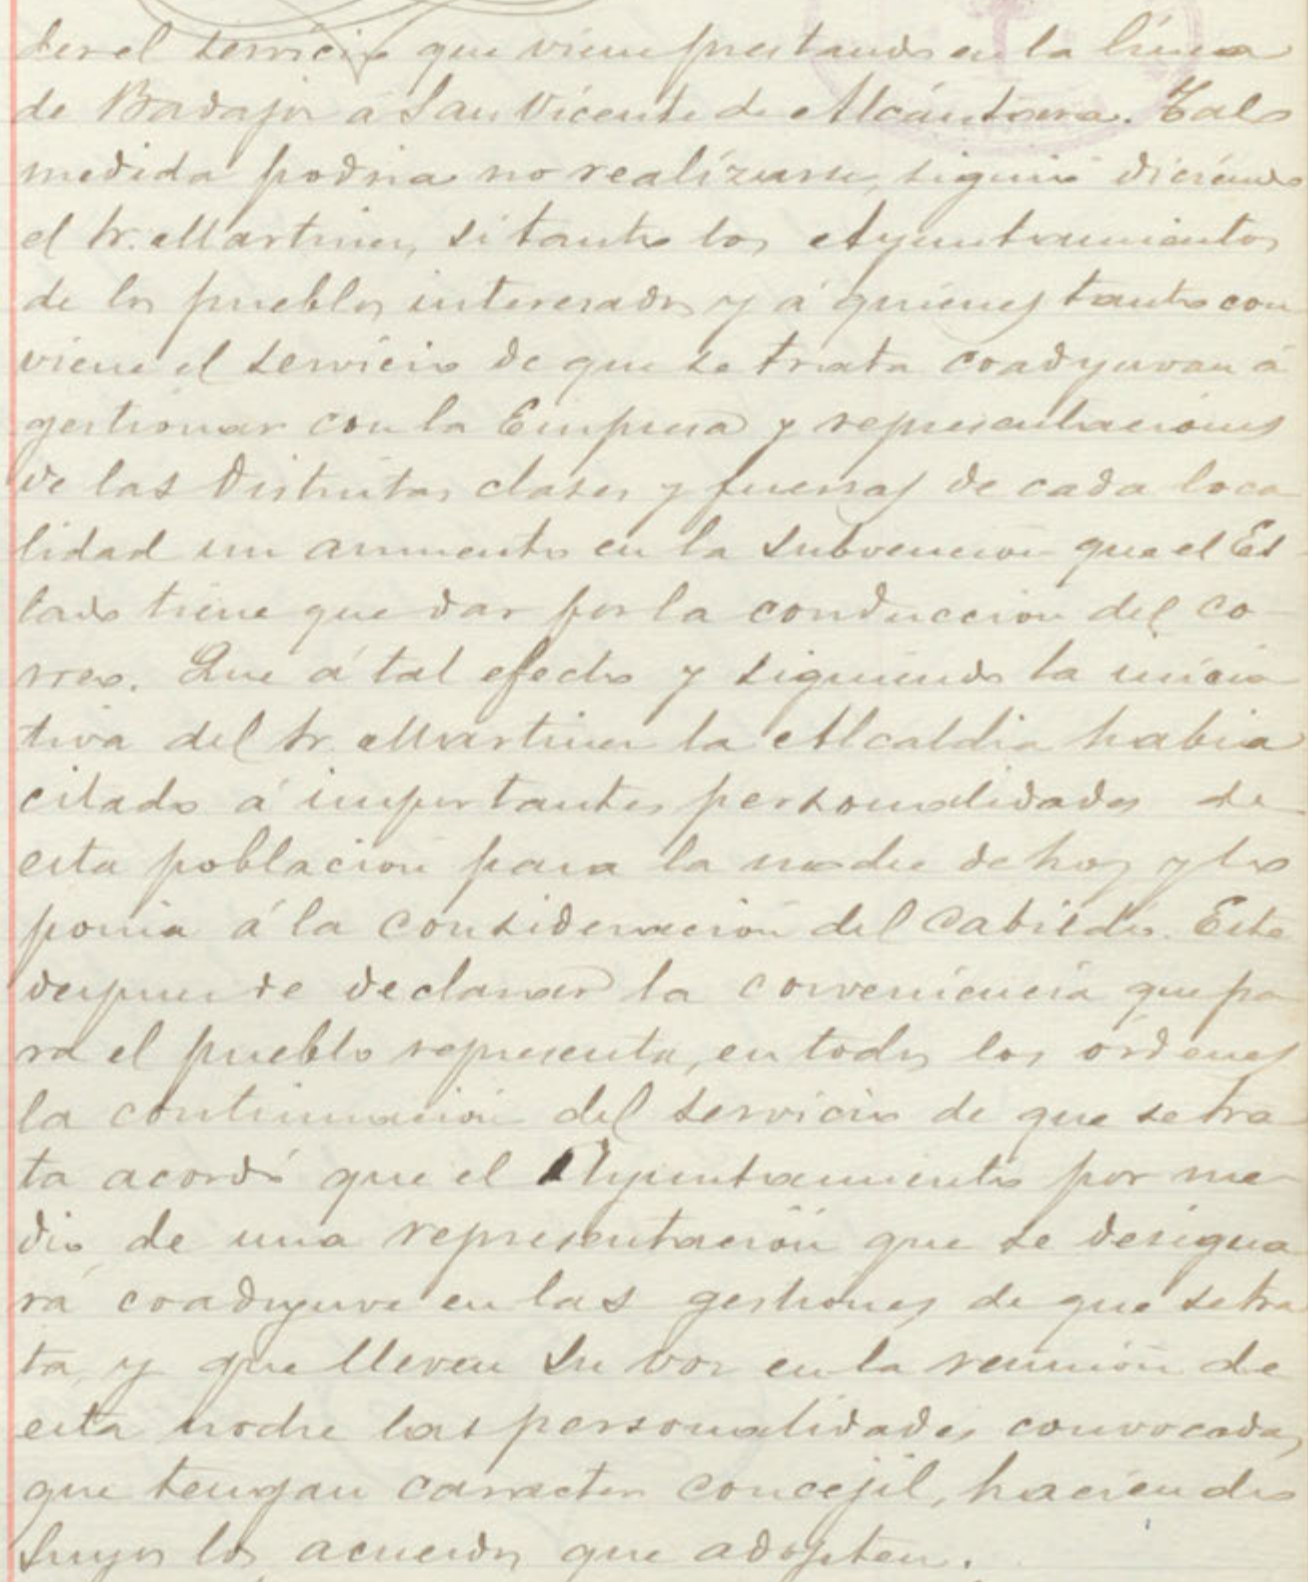 der el servicio que viene prestando en la línea
de Badajoz á San Vicente de Alcántara. Tal
medida podria no realizarse, siguió diciendo
el Sr. Martinez, si tanto los Ayuntamientos
de los pueblos interesados y á quienes tanto con
viene el servicio de que se trata coadyuvan á
gestionar con la Empresa y representaciones
de las distintas clases y fuerzas de cada loca
lidad un aumento en la subvencion que el Es
tado tiene que dar por la conduccion del co-
rreo. Que á tal efecto y siguiendo la inicia
tiva del Sr. Martinez la Alcaldia habia
citado á importantes personalidades de
esta poblacion para la noche de hoy y lo
ponia á la consideración del Cabildo. Este
despues de declarar la conveniencia que pa
ra el pueblo representa, en todos los órdenes
la continuacion del servicio de que se tra
ta acordó que el Ayuntamiento por me-
dio de una representación que se designa
rá coadyuve en las gestiones de que se tra
ta, y que lleven su voz en la reunión de
esta noche las personalidades convocadas
que tengan caracter concejil, haciendo
suyos los acuerdos que adopten.